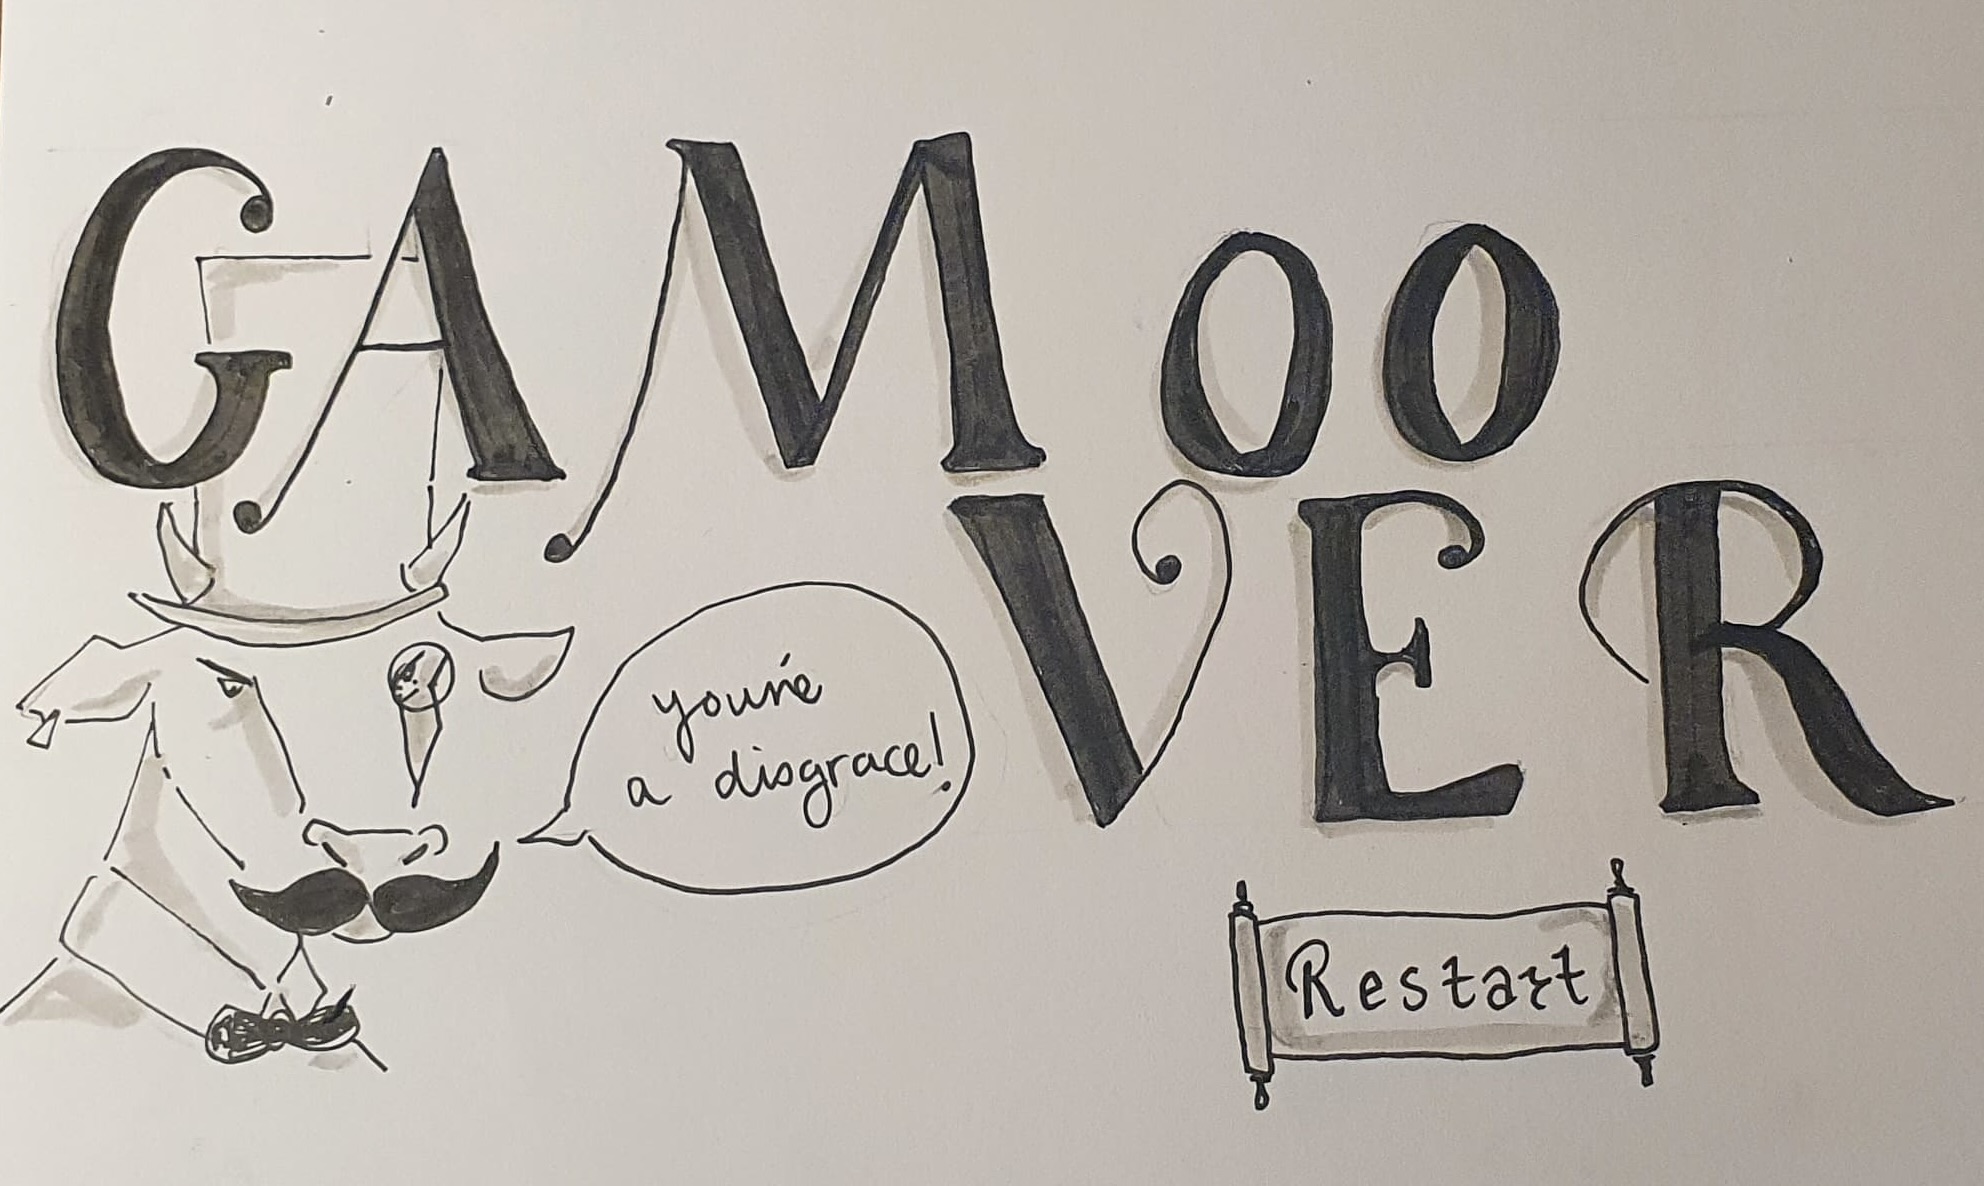 GAMOO
VER
you're
a disgrace!
Restart